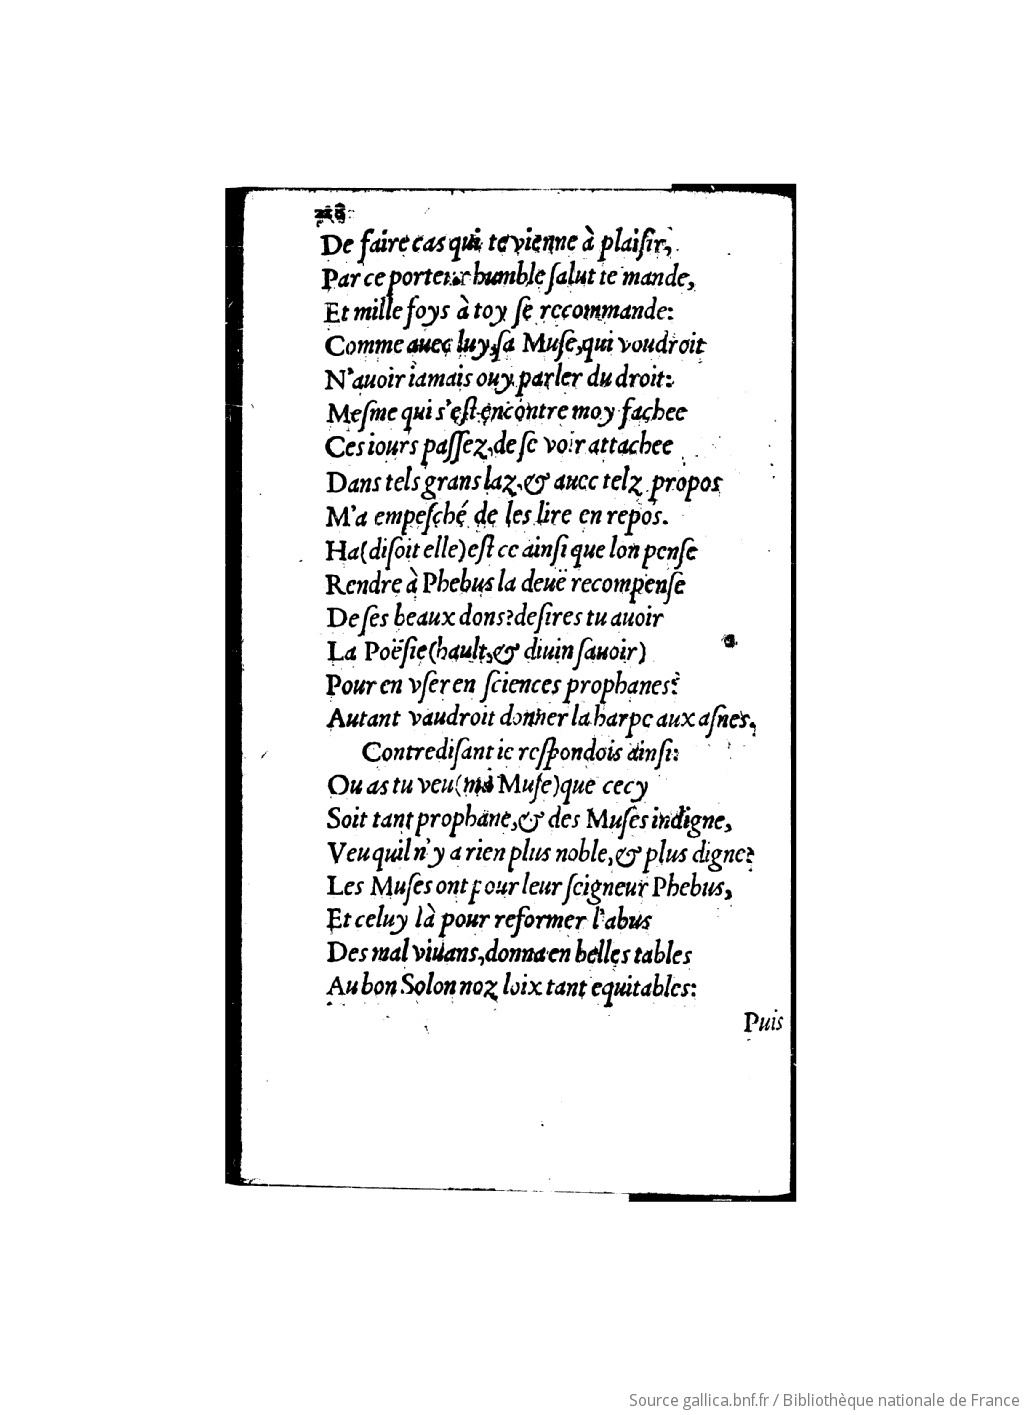 De faire cas qui te vienne à plaiſir,
Par ce porteur humble ſalut te mande,
Et mille foys à toy ſe recommande:
Comme auec luy, ſa Muſe, qui voudroit
N'auoir iamais ouy parler du droit:
Meſme qui s'eſt encontre moy fachee
Ces iours paſſez, de ſe voir attachee
Dans tels grans laz, & auec telz propos
M'a empeſché de les lire en repos.
Ha(diſoit elle)eſt ce ainſi que lon penſe
Rendre à Phebus la deuë recompenſe
De ſes beaux dons? deſires tu auoir
La Poëſie(hault, & diuin ſauoir)
Pour en vſer en ſciences prophanes?
Autant vaudroit donner la harpe aux aſnes.
Contrediſant ie reſpondois ainſi:
Ou as tu veu(ma Muſe)que cecy
Soit tant prophane, & des Muſes indigne,
Veu quil n'y a rien plus noble, & plus digne?
Les Muſes ont pour leur ſeigneur Phebus,
Et celuy là pour reformer l'abus
Des mal viuans, donna en belles tables
Au bon Solon noz loix tant equitables:
Puis
Source gallica.bnf.fr / Bibliothèque nationale de France